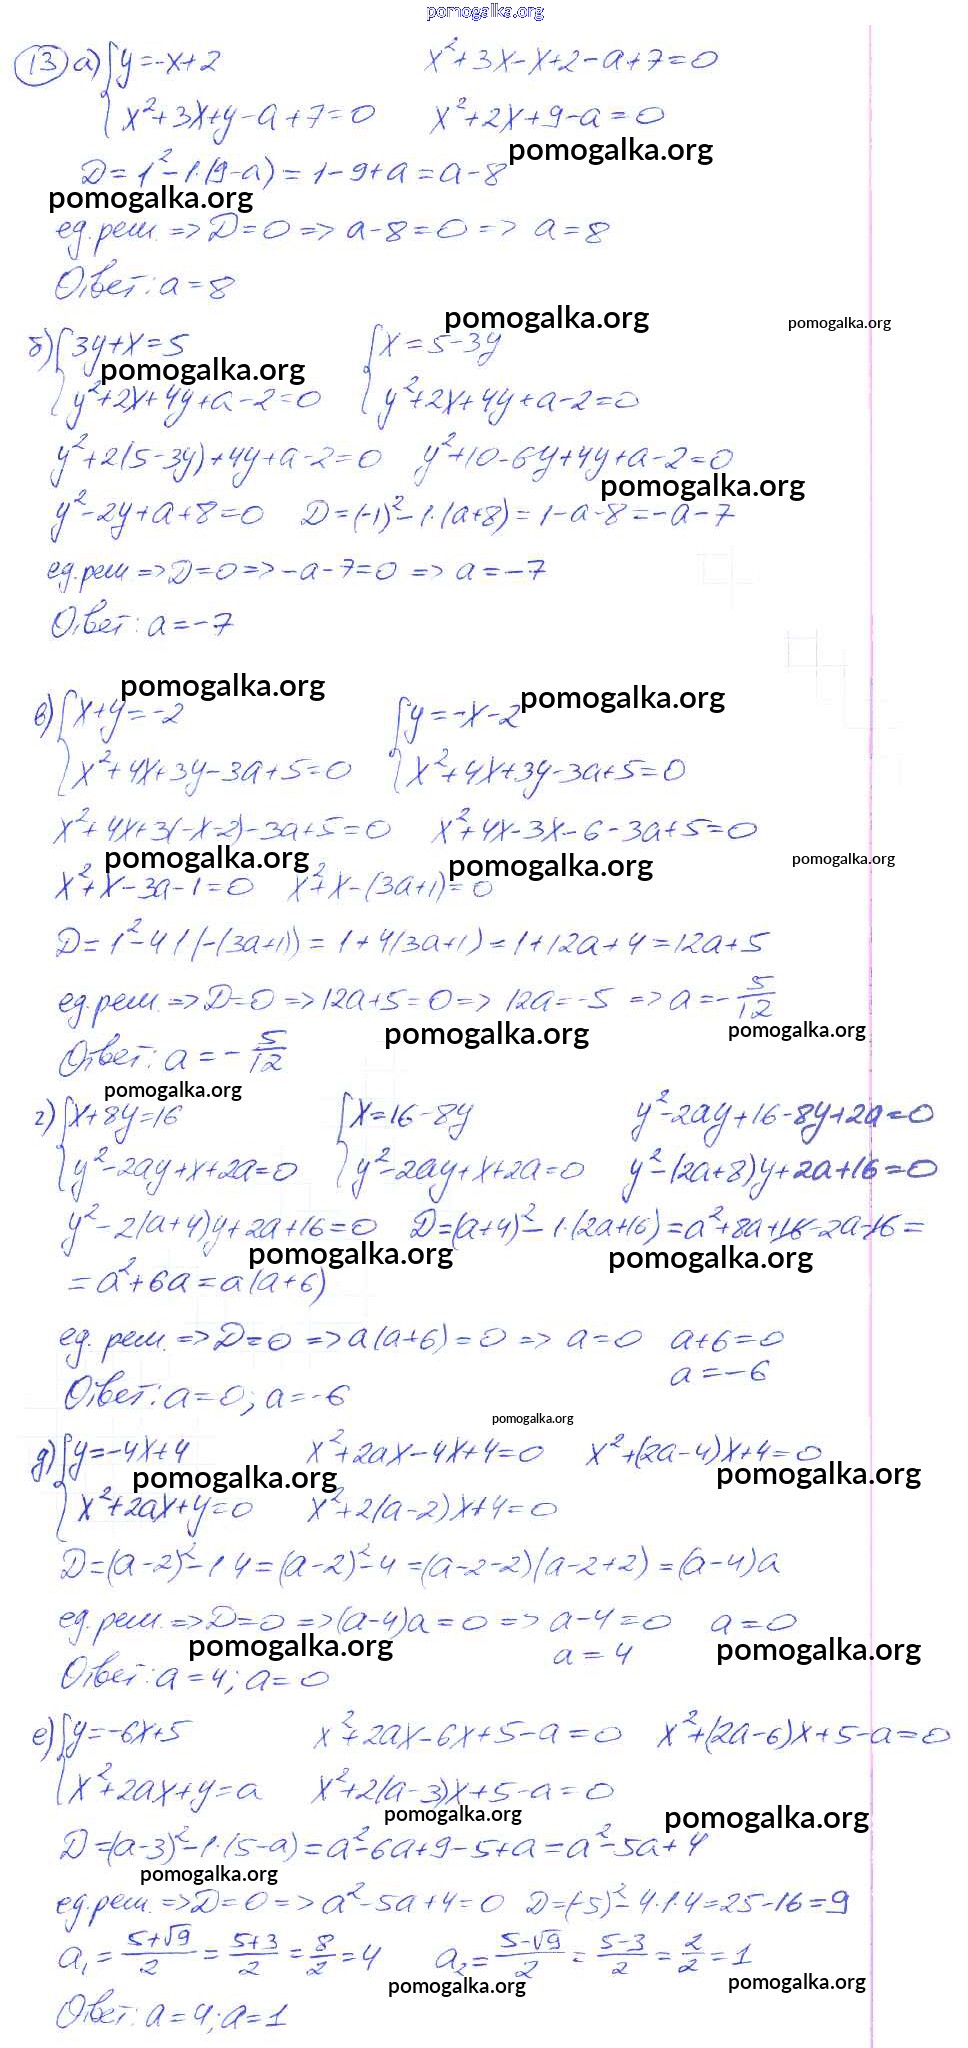 pomogalka.org
13 а) { y=-x+2     x²+3x-x+2-a+7=0
x²+3x+y-a+7=0     x²+2x+9-a=0
pomogalka.org
D=1²-1·(9-a)=1-9+a=a-8
pomogalka.org
ед.реш. => D=0 => a-8=0 => a=8
Ответ: a=8
pomogalka.org     pomogalka.org
б) { 3y+x=5     { x=5-3y
pomogalka.org
y²+2x+4y+a-2=0     y²+2x+4y+a-2=0
y²+2(5-3y)+4y+a-2=0     y²+10-6y+4y+a-2=0
pomogalka.org
y²-2y+a+8=0     D=(-1)²-1·(a+8)=1-a-8=-a-7
ед.реш => D=0 => -a-7=0 => a=-7
Ответ: a=-7
pomogalka.org     pomogalka.org
в) { x+y=-2     { y=-x-2
x²+4x+3y-3a+5=0     x²+4x+3y-3a+5=0
x²+4x+3(-x-2)-3a+5=0     x²+4x-3x-6-3a+5=0
pomogalka.org     pomogalka.org     pomogalka.org
x²+x-3a-1=0     x²+x-(3a+1)=0
D=1²-4·1·(-(3a+1))=1+4(3a+1)=1+12a+4=12a+5
ед.реш. => D=0 => 12a+5=0 => 12a=-5 => a=-5/12
pomogalka.org     pomogalka.org
Ответ: a=-5/12
pomogalka.org
г) { x+8y=16     { x=16-8y     y²-2ay+16-8y+2a=0
y²-2ay+x+2a=0     y²-2ay+x+2a=0     y²-(2a+8)y+2a+16=0
y²-2(a+4)y+2a+16=0     D=(a+4)²-1·(2a+16)=a²+8a+16-2a-16=
pomogalka.org     pomogalka.org
=a²+6a=a(a+6)
ед. реш. => D=0 => a(a+6)=0 => a=0     a+6=0
a=-6
Ответ: a=0; a=-6
pomogalka.org
д) { y=-4x+4     x²+2ax-4x+4=0     x²+(2a-4)x+4=0
pomogalka.org     pomogalka.org
x²+2ax+y=0     x²+2(a-2)x+4=0
D=(a-2)²-1·4=(a-2)²-4=(a-2-2)(a-2+2)=(a-4)a
ед.реш. => D=0 => (a-4)a=0 => a-4=0     a=0
pomogalka.org     a=4     pomogalka.org
Ответ: a=4; a=0
е) { y=-6x+5     x²+2ax-6x+5-a=0     x²+(2a-6)x+5-a=0
x²+2ax+y=a     x²+2(a-3)x+5-a=0
pomogalka.org     pomogalka.org
D=(a-3)²-1·(5-a)=a²-6a+9-5+a=a²-5a+4
pomogalka.org
ед.реш. => D=0 => a²-5a+4=0     D=(-5)²-4·1·4=25-16=9
a₁=(5+√9)/2=(5+3)/2=8/2=4     a₂=(5-√9)/2=(5-3)/2=2/2=1
pomogalka.org     pomogalka.org
Ответ: a=4; a=1